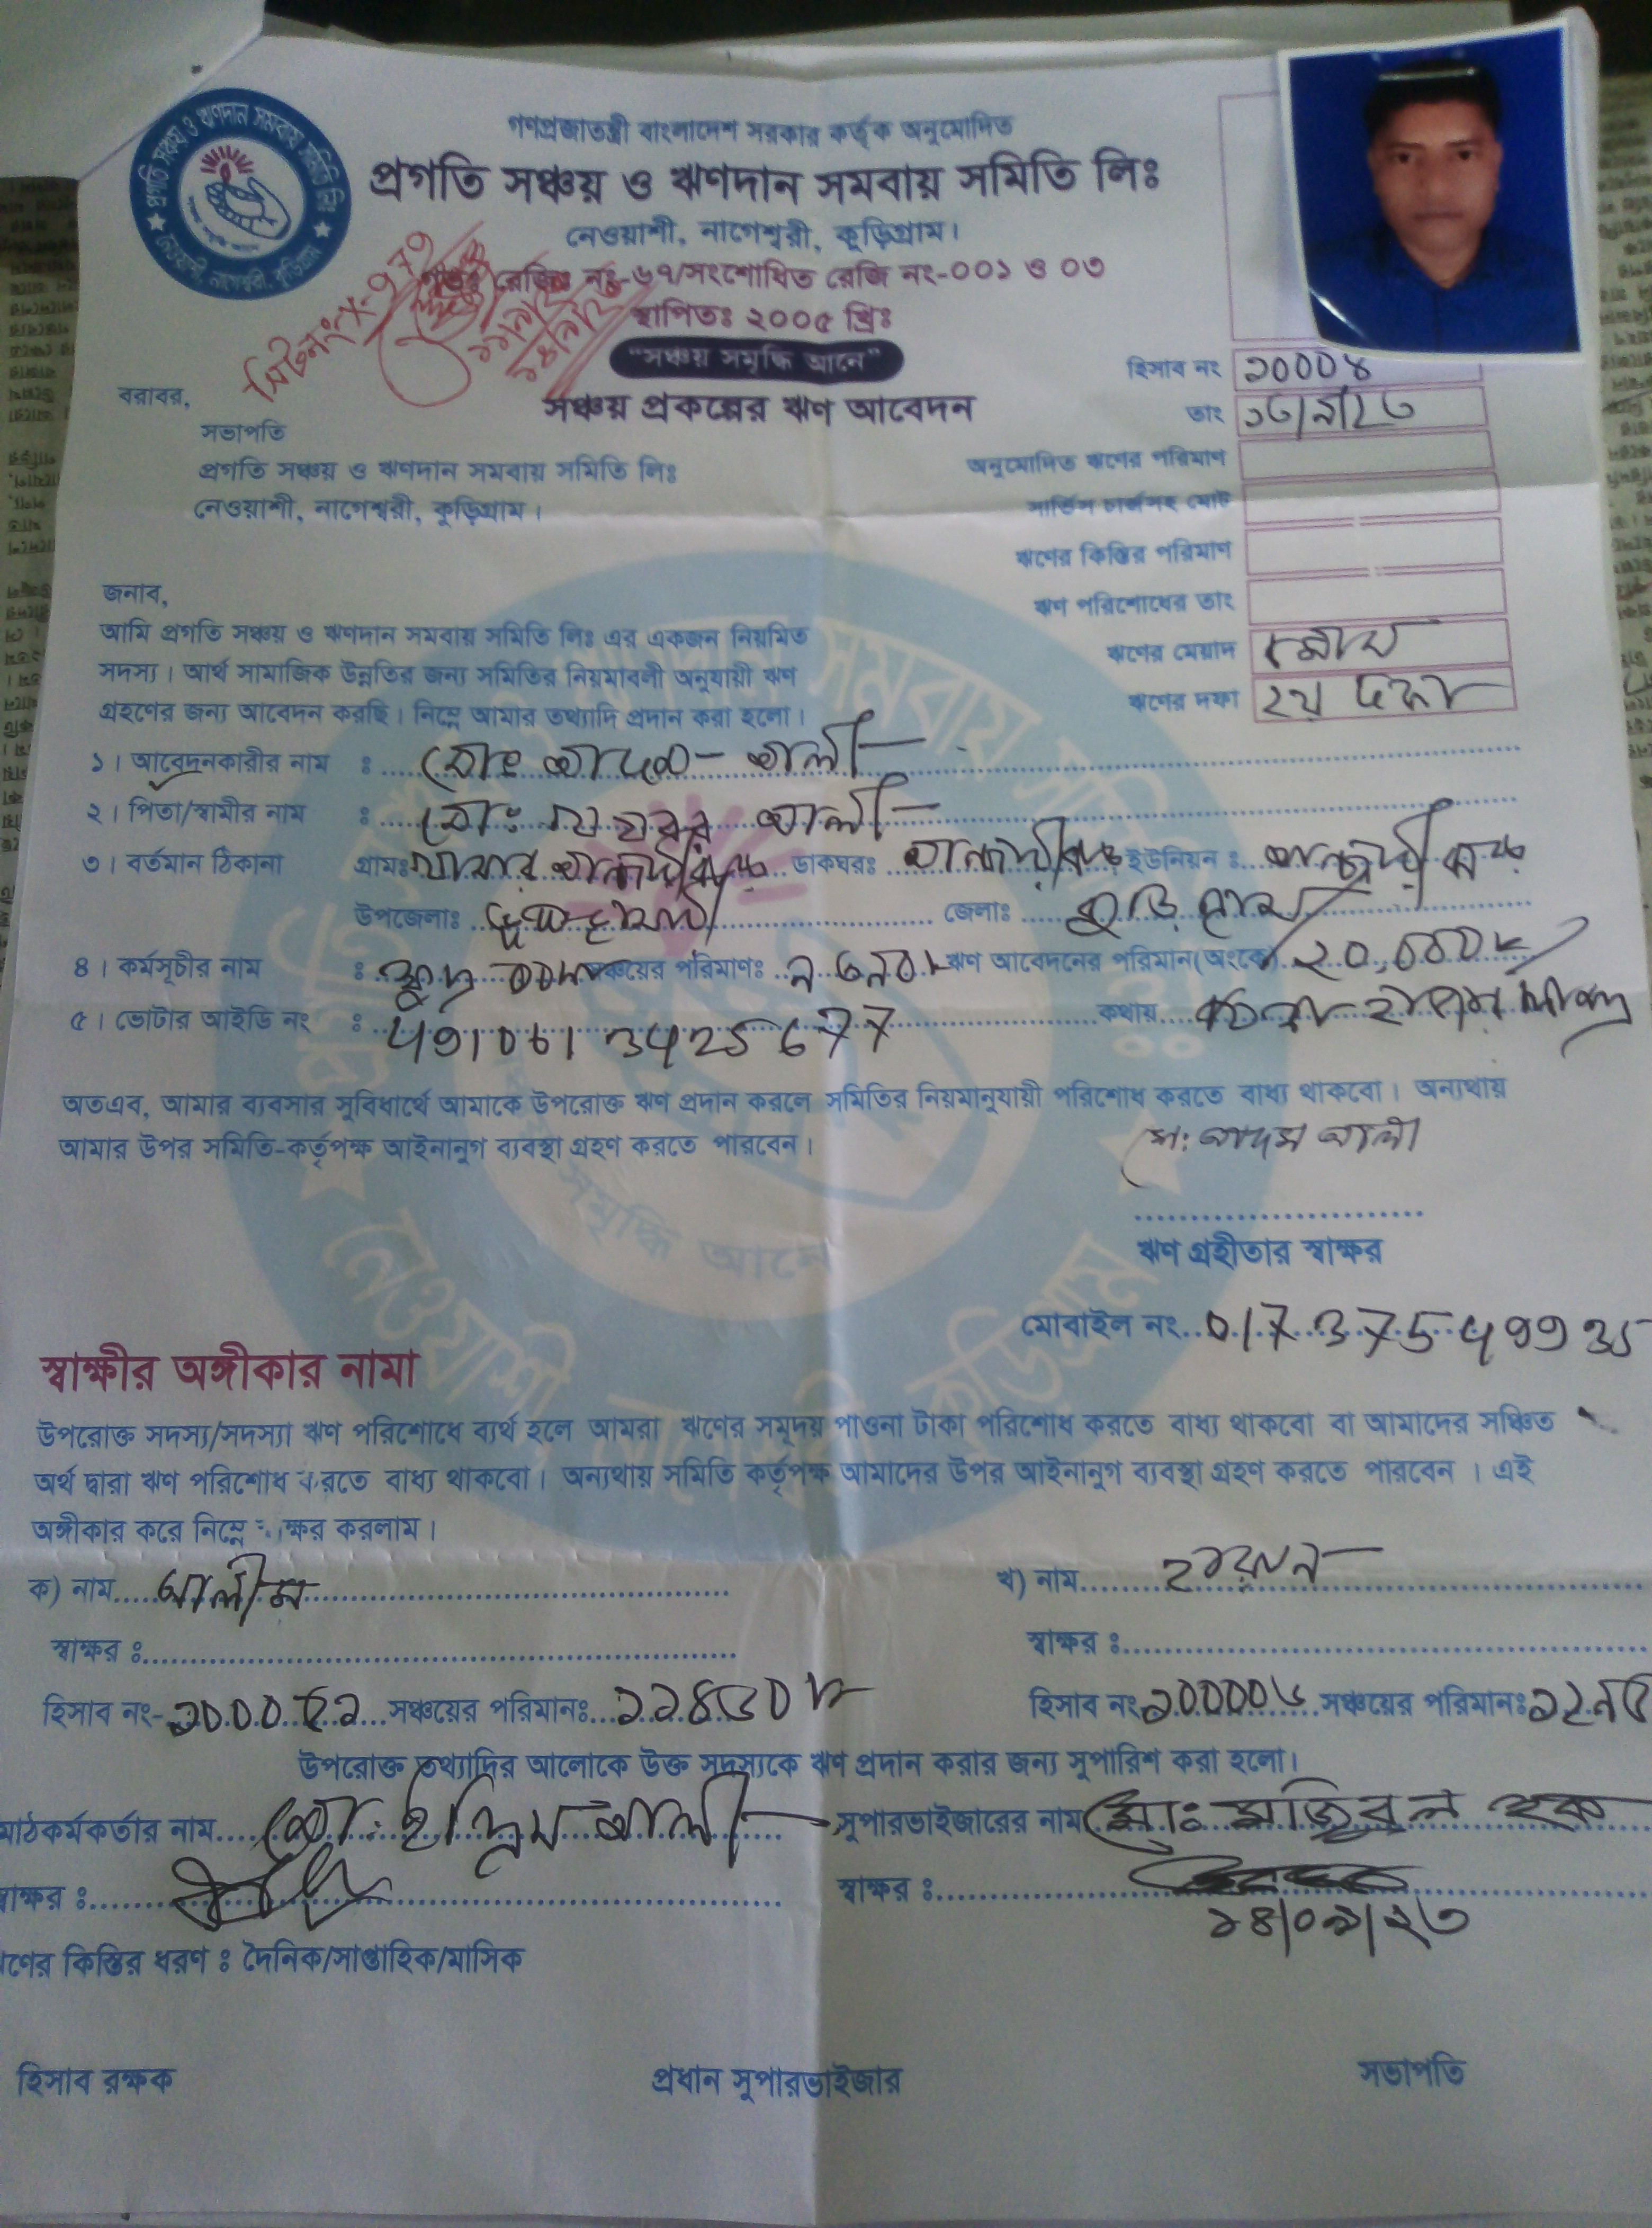 প্রগতি সঞ্চয় ও ঋণদান সমবায় সমিতি লিঃ
নেওয়াশী, নাগেশ্বরী, কুড়িগ্রাম
গণপ্রজাতন্ত্রী বাংলাদেশ সরকার কর্তৃক অনুমোদিত
প্রগতি সঞ্চয় ও ঋণদান সমবায় সমিতি লিঃ
নেওয়াশী, নাগেশ্বরী, কুড়িগ্রাম।
রেজিঃ নং-৬৭/সংশোধিত রেজি নং-০০১ ও ০৩
স্থাপিতঃ ২০০৫ খ্রিঃ
"সঞ্চয় সমৃদ্ধি আনে"
সঞ্চয় প্রকল্পের ঋণ আবেদন
হিসাব নং ১০০০৪
তাং ১৩/৯/২৩
অনুমোদিত ঋণের পরিমাণ
সার্ভিস চার্জসহ মোট
ঋণের কিস্তির পরিমাণ
ঋণ পরিশোধের তাং
ঋণের মেয়াদ
ঋণের দফা ২য় দফা
বরাবর,
সভাপতি
প্রগতি সঞ্চয় ও ঋণদান সমবায় সমিতি লিঃ
নেওয়াশী, নাগেশ্বরী, কুড়িগ্রাম।
জনাব,
আমি প্রগতি সঞ্চয় ও ঋণদান সমবায় সমিতি লিঃ এর একজন নিয়মিত
সদস্য। আর্থ সামাজিক উন্নতির জন্য সমিতির নিয়মাবলী অনুযায়ী ঋণ
গ্রহণের জন্য আবেদন করছি। নিম্নে আমার তথ্যাদি প্রদান করা হলো।
১। আবেদনকারীর নাম ঃ মোঃ আদম আলী
২। পিতা/স্বামীর নাম ঃ মোঃ আলী
৩। বর্তমান ঠিকানা গ্রামঃ খামার আন্ধারীঝাড় ডাকঘরঃ আন্ধারীঝাড় ইউনিয়ন ঃ আন্ধারীঝাড়
উপজেলাঃ ভুরুঙ্গামারী জেলাঃ কুড়িগ্রাম
৪। কর্মসূচীর নাম ঃ ক্ষুদ্র সঞ্চয়ের পরিমাণঃ ঋণ আবেদনের পরিমান(অংকে) ২০,০০০/-
৫। ভোটার আইডি নং ঃ 4910613425677 কথায় হাজার
অতএব, আমার ব্যবসার সুবিধার্থে আমাকে উপরোক্ত ঋণ প্রদান করলে সমিতির নিয়মানুযায়ী পরিশোধ করতে বাধ্য থাকবো। অন্যথায়
আমার উপর সমিতি-কর্তৃপক্ষ আইনানুগ ব্যবস্থা গ্রহণ করতে পারবেন।
মো: আদম আলী
ঋণ গ্রহীতার স্বাক্ষর
মোবাইল নং
স্বাক্ষীর অঙ্গীকার নামা
উপরোক্ত সদস্য/সদস্যা ঋণ পরিশোধে ব্যর্থ হলে আমরা ঋণের সমূদয় পাওনা টাকা পরিশোধ করতে বাধ্য থাকবো বা আমাদের সঞ্চিত
অর্থ দ্বারা ঋণ পরিশোধ করতে বাধ্য থাকবো। অন্যথায় সমিতি কর্তৃপক্ষ আমাদের উপর আইনানুগ ব্যবস্থা গ্রহণ করতে পারবেন। এই
অঙ্গীকার করে নিম্নে ক্ষর করলাম।
ক) নাম আলীম
খ) নাম
স্বাক্ষর ঃ
স্বাক্ষর ঃ
হিসাব নং- সঞ্চয়ের পরিমানঃ ১১৪৩০/-
হিসাব নং ১০০০০৬ সঞ্চয়ের পরিমানঃ
উপরোক্ত তথ্যাদির আলোকে উক্ত সদস্যকে ঋণ প্রদান করার জন্য সুপারিশ করা হলো।
মাঠকর্মকর্তার নাম মো: ইদ্রিস আলী
সুপারভাইজারের নাম মোঃ মজিবুল হক
স্বাক্ষর ঃ
স্বাক্ষর ঃ
১৪/০৯/২৩
ণের কিস্তির ধরণ ঃ দৈনিক/সাপ্তাহিক/মাসিক
হিসাব রক্ষক
প্রধান সুপারভাইজার
সভাপতি